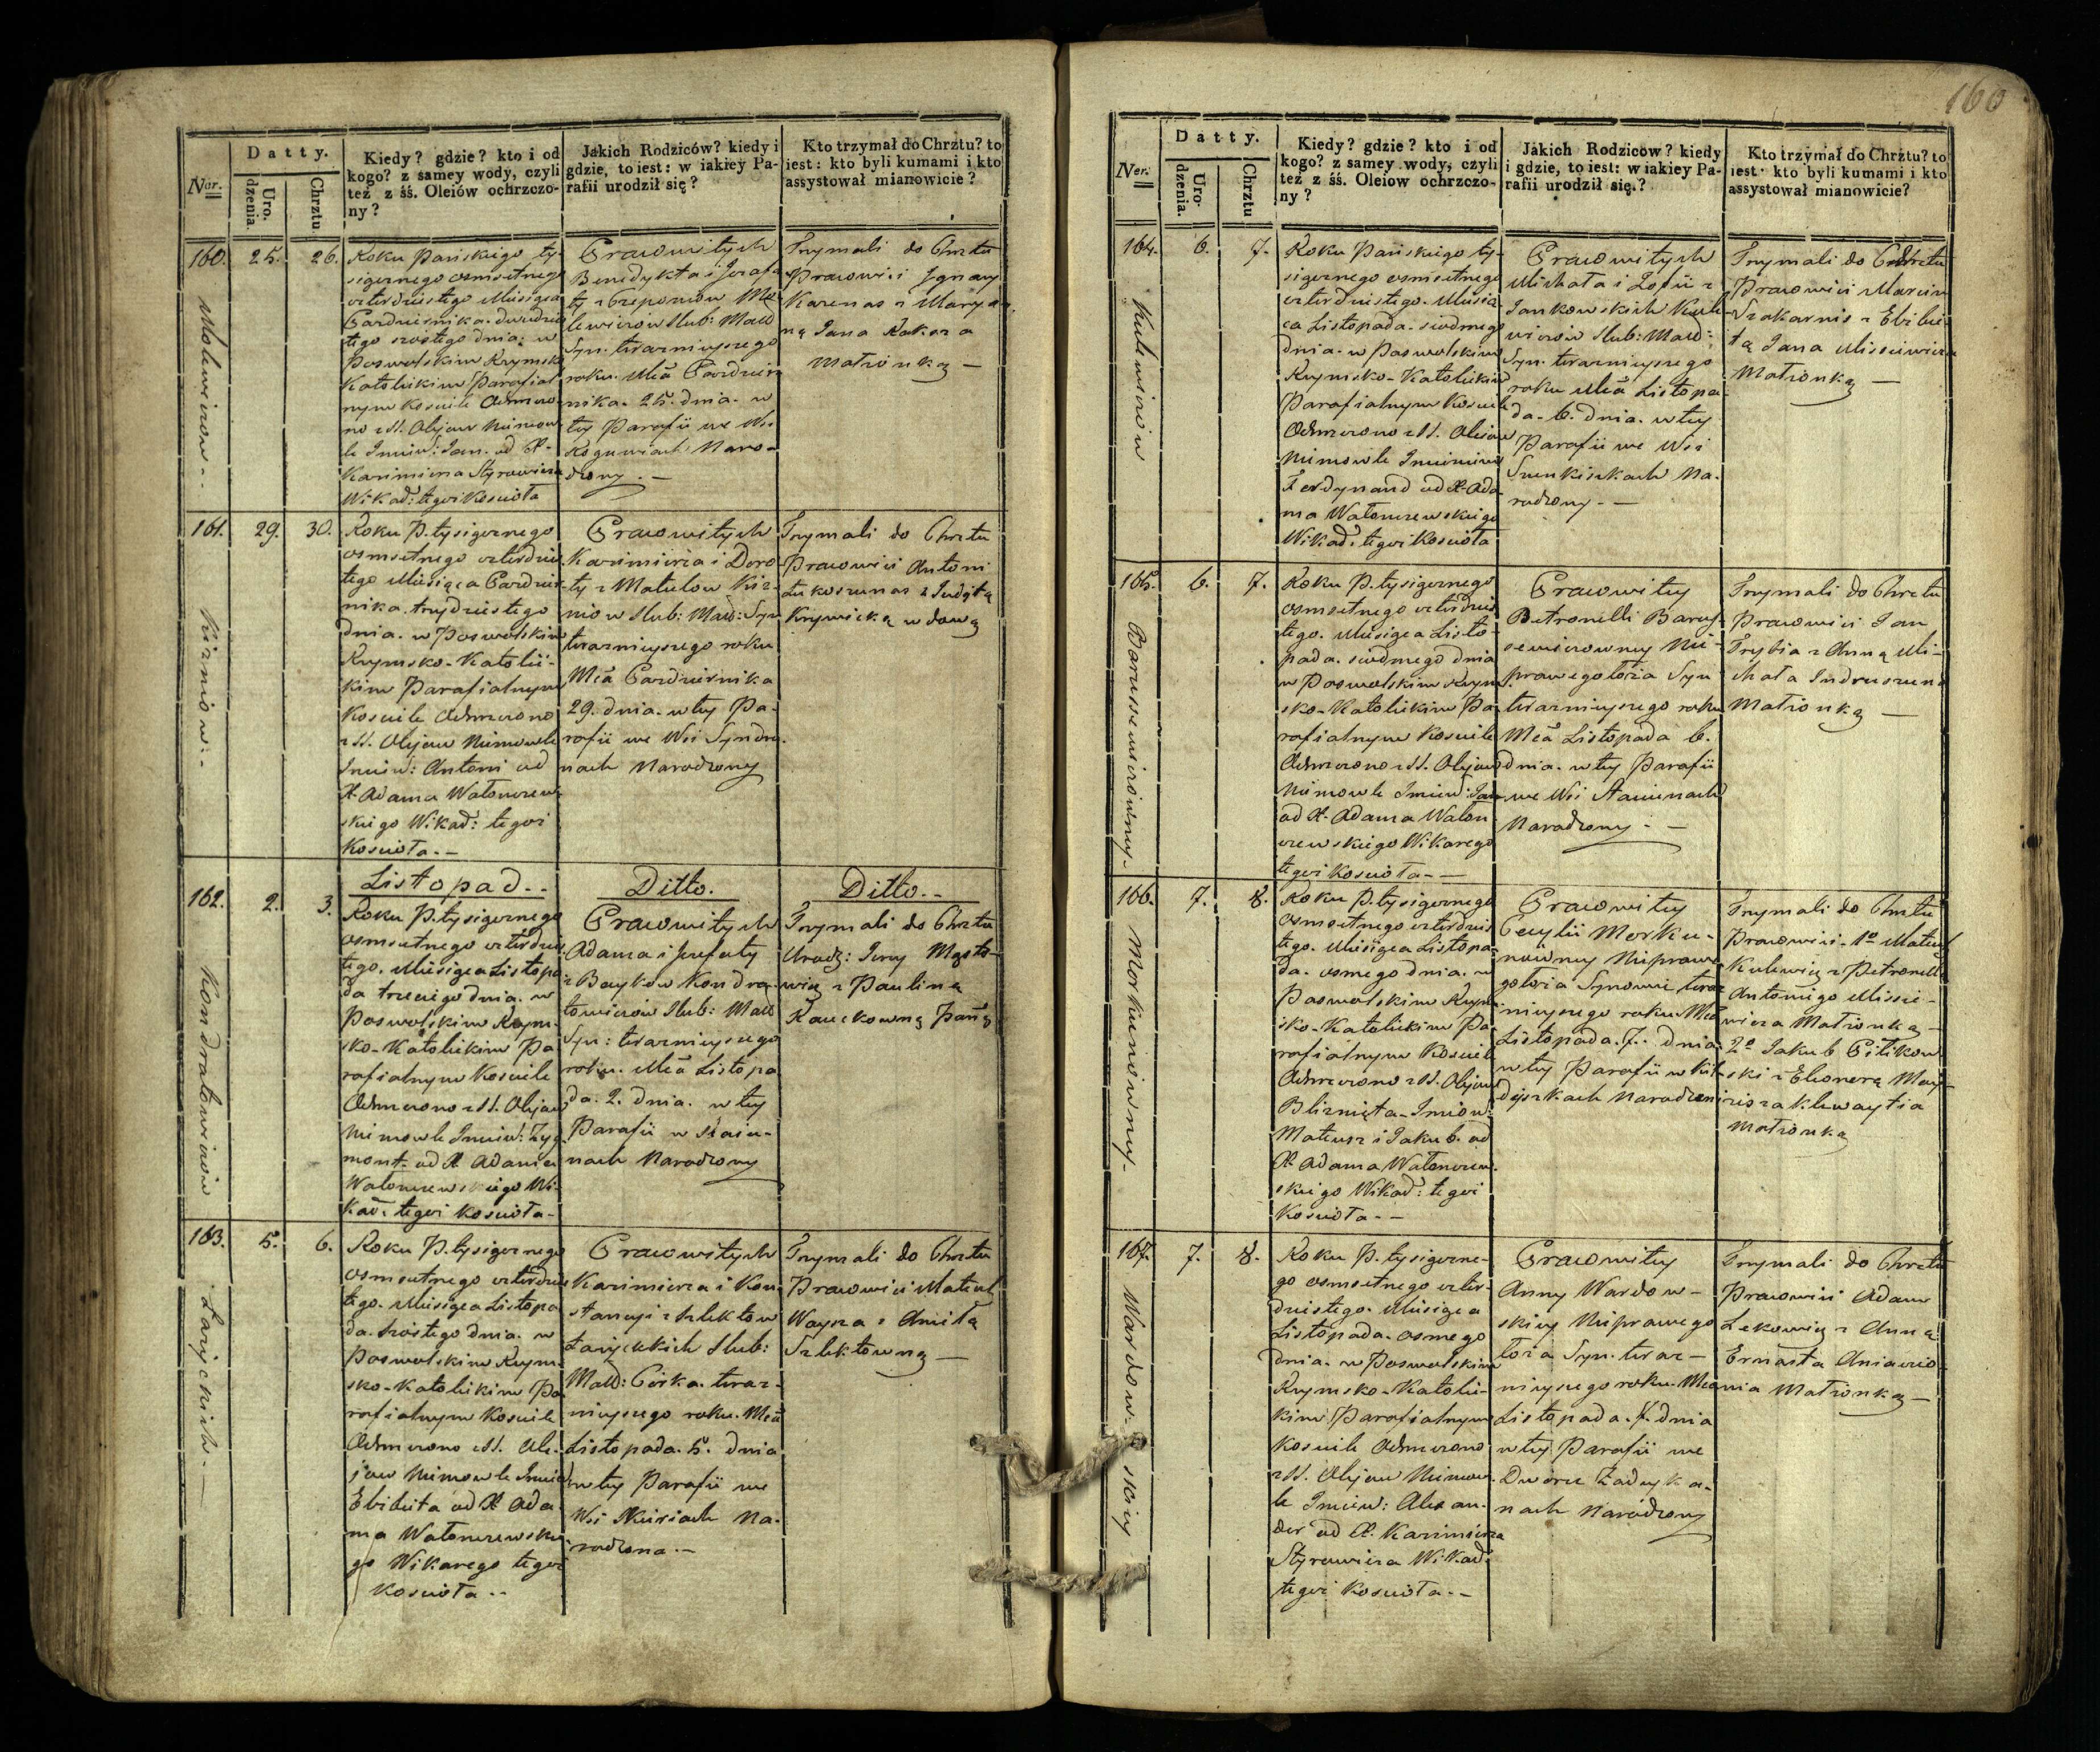 160
Nar.
Datty.
Uro. dzenia.
Chrztu
Kiedy? gdzie? kto i od
kogo? z samey wody, czyli
teź z śś. Oleiów ochrzczo-
ny?
Jakich Rodziców? kiedy i
gdzie, to iest: w iakiey Pa-
rafii urodził się?
Kto trzymał do Chrztu? to
iest: kto byli kumami i kto
assystował mianowicie?
160.
25.
26.
Roku Pańskiego ty-
sigcznego osmsetnego
czterdziestego Miesigca
Pazdziernika dwudzies
tego szostego dnia: w
Poswolskim Rzymsk
Katolickim Parafial
nym Kosciele Ochrzczo-
no z SS. Olejow Niemow-
le Imiew: Jan. od X-
Kazimierza Styrowicza
Wikad: tegoż Kosciola
Prawowitych
Benedykta i Jozafa
ty z Czeponiow Mo
lewiczow Slub: Małż
Syn. teraznieyszego
roku. Mca Pazdzier
nika. 25. dnia. w
tey Parafii we Wsi
Naro-
dzony. —
Trzymali do Chrztu
Prawowici Jgnacy
Karenas z Marya
ną Jana
Małżonką —
161.
29.
30.
Roku P. tysigcznego
osmsetnego czterdzies
tego Miesiąca Pazdzier-
nika. trzydziestego
dnia. w Poswolskim
Rzymsko-Katolic-
kim Parafialnym
Kosciele Ochrzczono
z SS. Olejow Niemowle
Imiew: Antoni od
X. Adama Watonczew
skiego Wikad: tegoż
Kosciola. —
Prawowitych
Kazimierza i Doro
ty z Matulow Kir-
niow Slub: Małż: Syn
teraznieyszego roku
Mca Pazdziernika
29. dnia. w tey Pa-
rafii we Wsi Syndry.
nach Narodzony
Trzymali do Chrztu
Prawowici Antoni
Lukoszunas z Judytą
Krywicką wdową
Listopad.-
Ditto.
Ditto.-
162.
2.
3.
Kondratowiczow
Roku P. tysigcznego
osmsetnego czterdzies
tego. Miesigca Listopa
da trzeciego dnia. w
Poswolskim Rzym-
sko-Katolickim Pa
rafialnym Kosciele
Ochrzczono z SS. Olejow
Niemowle Imiew: Zyg
mont. od X. Adama
Watonczewskiego Wi-
kad: tegoż Kosciola-
Prawowitych
Adama i Jozefaty
z Baykow Kondra-
towiczow Slub: Małż
Syn: teraznieyszego
roku. Mca Listopa
da. 2. dnia. w tey
Parafii w Staiu-
nach Narodzony
Trzymali do Chrztu
Urodz: Jerzy
wicz z Pauliną
Panną
163.
5.
6.
Roku P. tysigcznego
osmsetnego czterdzies
tego. Miesigca Listopa
da. szostego dnia. w
Poswolskim Rzym-
sko-Katolickim Pa
rafialnym Kosciele
Ochrzczono z SS. Ole-
jow Niemowle Imiew
Elzbieta od X. Ada-
ma Watonczewskie
go Wikarego tegoż
Kosciola.-
Prawowitych
Kazimierza i Kon-
stancyi z Szlektow
Łaryckich Slub:
Małż: Corka. teraz-
nieyszego roku. Mca
Listopada. 5. dnia
w tey Parafii we
Wsi Na-
rodzona. —
Trzymali do Chrztu
Prawowici Mateusz
Wayza z Anielą
Szlektowną —
Ner.
Datty.
Uro- dzenia.
Chrztu
Kiedy? gdzie? kto i od
kogo? z samey wody, czyli
też z śś. Oleiow ochrzczo-
ny?
Jakich Rodziców? kiedy
i gdzie, to iest: w iakiey Pa-
rafii urodził się?
Kto trzymał do Chrźtu? to
iest: kto byli kumami i kto
assystował mianowicie?
164.
6.
7.
Kulewiczow
Roku Pańskiego ty-
sigcznego osmsetnego
czterdziestego. Miesig
ca Listopada. siodmego
dnia. w Poswolskim
Rzymsko-Katolickim
Parafialnym Kosciele
Ochrzczono z SS. Olejow
Niemowle Imieniem
Ferdynand od X. Ada
ma Watonczewskiego
Wikad. tegoż Kosciola
Prawowitych
Michała i Zofii z
Jankowskich Kule
wiczow Slub: Małż:
Syn. teraznieyszego
roku Mca Listopa-
da. 6. dnia. w tey
Parafii we Wsi
Na-
rodzony. —
Trzymali do Chrztu
Prawowici Marcin
Szakarnis z Elzbie-
tą Jana Missiewicza
Małżonką —
165.
6.
7.
Roku P. tysigcznego
osmsetnego czterdzies
tego. Miesigca Listo-
pada. siodmego dnia
w Poswolskim Rzym
sko-Katolickim Pa-
rafialnym Kosciele
Ochrzczono z SS. Olejow
Niemowle Imiew: Jan
od X. Adama Waton
czewskiego Wikarego
tegoż Kosciola. —
Prawowitey
Petronelli Barus-
sewiczowney Nie-
prawegołoża Syn
teraznieyszego roku
Mca Listopada 6.
dnia. w tey Parafii
we Wsi Staciunach
Narodzony. —
Trzymali do Chrztu
Prawowici Jan
Trybia z Anną Mi-
chała Indruszuna
Małżonką —
166.
7.
8.
Morkunowney-
Roku P. tysigcznego
osmsetnego czterdzies
tego. Miesigca Listopa-
da. osmego dnia. w
Poswolskim Rzym
sko-Katolickim Pa-
rafialnym Kosciele
Ochrzczono z SS. Olejow
Bliznięta Imiow:
Mateusz i Jakub. od
X. Adama Watonczew-
skiego Wikad: tegoż
Kosciola.-
Prawowitey
Cecylii Morku-
nowney Nieprawe
gołoża Synowie teraz
nieyszego roku. Mca
Listopada. 7. dnia
w tey Parafii w
Narodzeni
Trzymali do Chrztu
Prawowici. 1o Mateusz
Kulewicz z Petronellą
Antoniego Missie-
wicza Małżonką —
2o Jakub Pilikow
ski z Eleonorą
Małżonką
167.
7.
8.
Wardow-skiey
Roku P. tysigczne-
go osmsetnego czter-
dziestego. Miesigca
Listopada. osmego
dnia. w Poswolskim
Rzymsko-Katolic-
kim Parafialnym
Kosciele Ochrzczono
z SS. Olejow Niemow-
le Imiew: Alexan-
der od X. Kazimierza
Styrowicza Wikad:
tegoż Kosciola.-
Prawowitey
Anny Wardow-
skiey Nieprawego
łoża Syn. teraz-
nieyszego roku. Mca
Listopada. 7. dnia
w tey Parafii we
Dworze Zadeyka-
nach Narodzony
Trzymali do Chrztu
Prawowici Adam
Lekowicz z Anną
Ernasta
Małżonką —